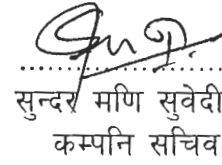 सुन्दर मणि सुवेदी
कम्पनि सचिव